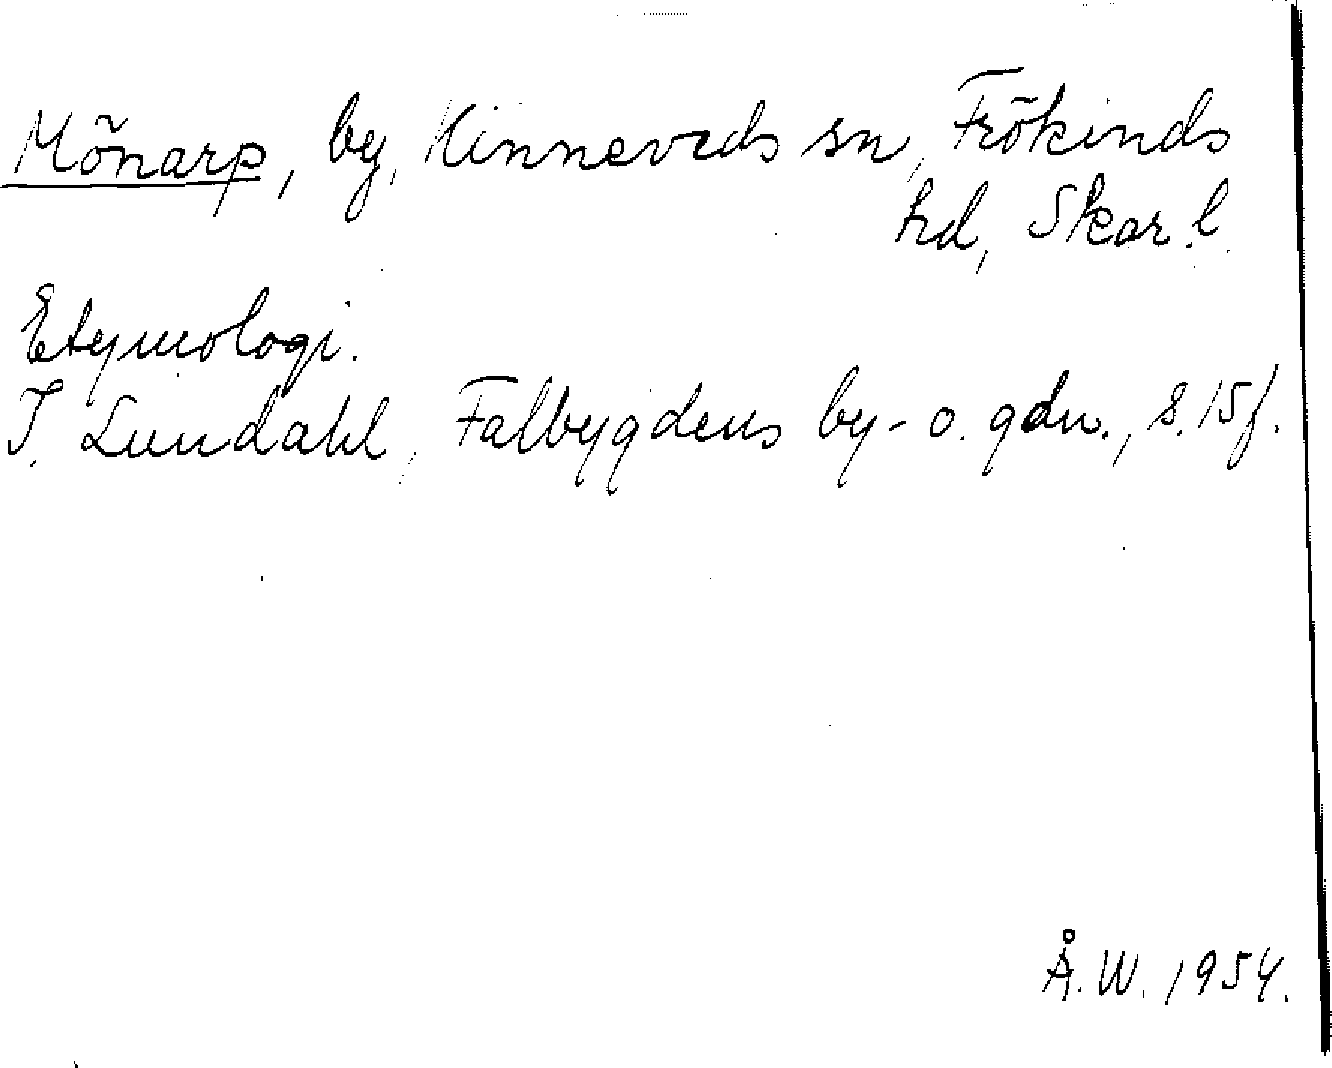 Mönarp, by, Kinneveds sn, Frökinds
hd, Skar. l.
Etymologi.
I. Lundahl, Falbygdens by- o. gdn., s. 15 f.
Å. W. 1954.